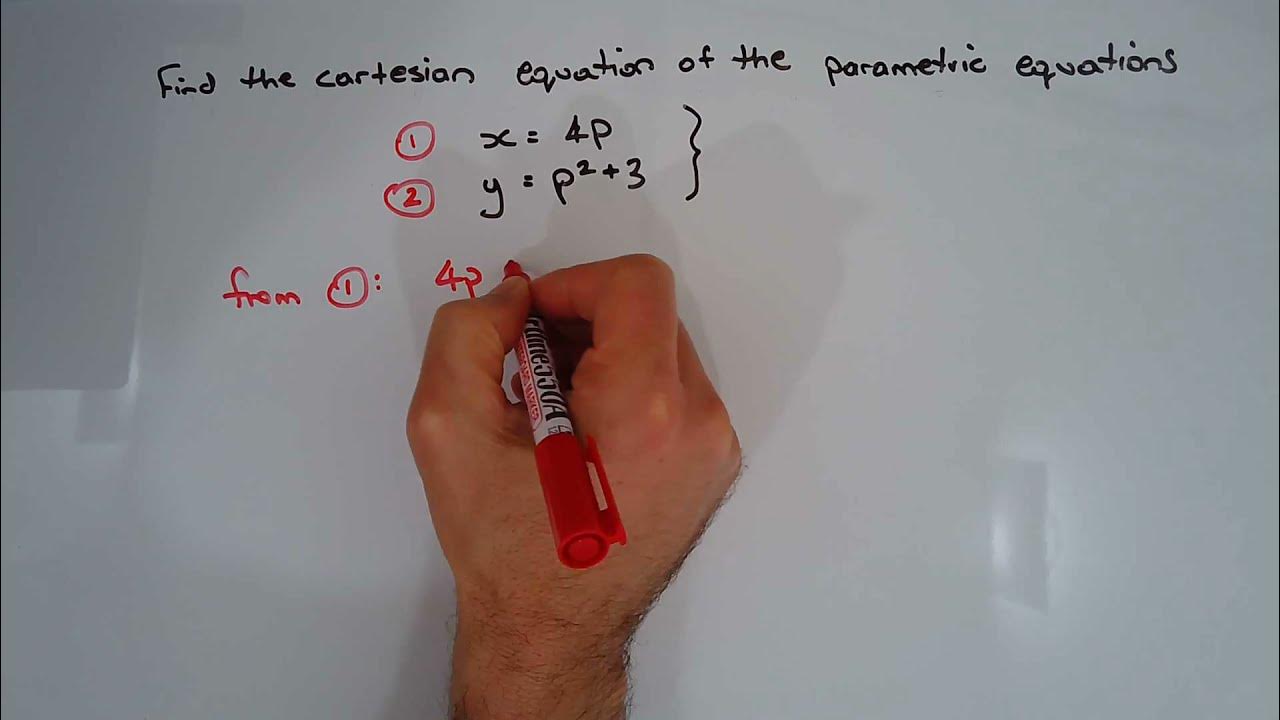 Find the cartesian equation of the parametric equations
① x = 4p
② y = p² + 3
from ①: 4p